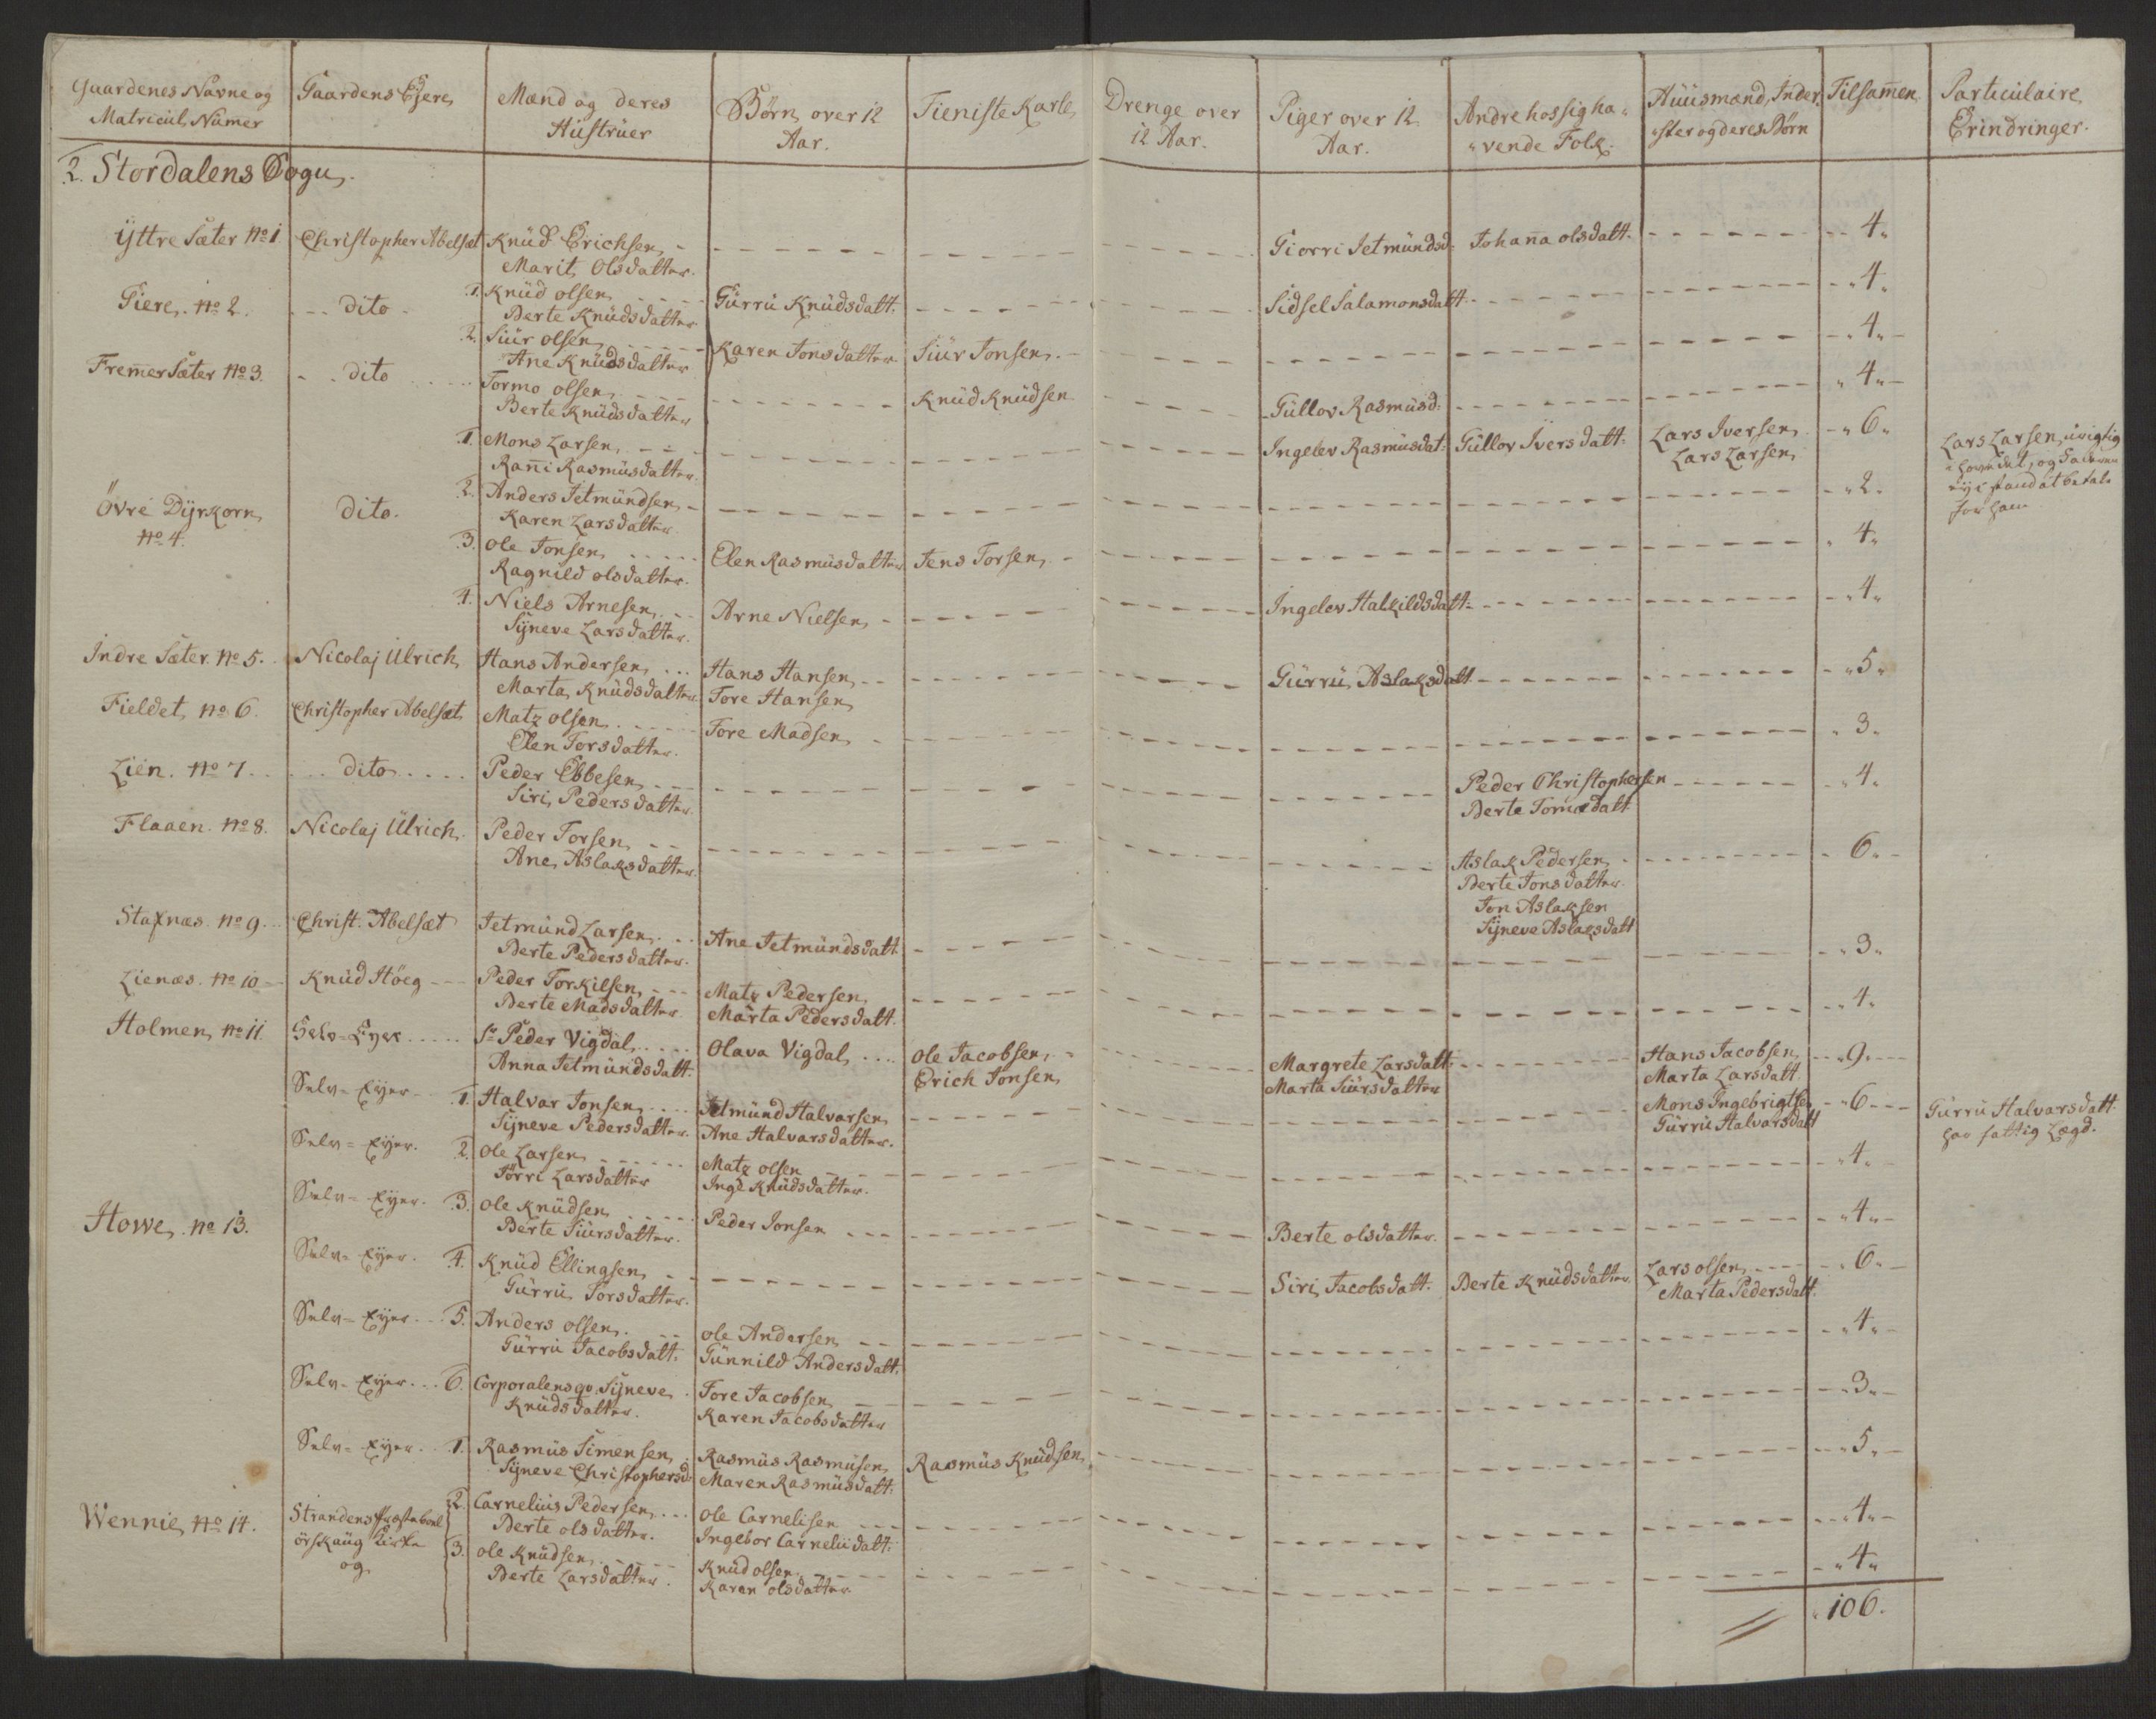 Gaardenes Navne og Matricul Numer | Gaardens Ejere | Mænd og deres Hustruer | Børn over 12 Aar. | Tieniste Karle | Drenge over 12 Aar. | Piger over 12 Aar. | Andre hos sig ha-vende Folk. | Huusmænd, Inder-ster og deres Børn | Tilsam̄en | Particulaire Erindringer.
2. Stordalens Sogn.
Yttre Sæter No 1 | Christopher Abelsæt | Knud Erichsen | Giorri Jetmundsd: | Johan̄a olsdatt. | 4
Marit Olsdatter.
Giere No 2. | dito | 1. Knud olsen | Gurru Knudsdatt. | Sidsel Salamonsdatt | 4
Berte Knudsdatter
2. Siur olsen | Karen Jonsdatter | Siur Jonsen. | 4
Ane Knudsdatter
Frem̄er Sæter No 3. | dito | Tormo olsen | Knud Knudsen | Gullov Rasmusd: | 4
Berte Knudsdatter
1. Mons Larsen | Ingelev Rasmusdat: | Gullov Iversdatt: | Lars Iversen | 6 | Lars Larsen urigtig
Ran̄i Rasmusdatter. | Lars Larsen
Øvre Dyrkorn | dito. | 2. Anders Jetmundsen | 2
No 4. | Karen Larsdatter
3. Ole Jonsen | Elen Rasmusdatter | Jens Torsen | 4
Ragnild olsdatter.
4. Niels Arnesen | Arne Nielsen | Ingelev Halkildsdatt: | 4
Syneve Larsdatter.
Indre Sæter No 5. | Nicolaj Ulrich | Hans Andersen | Hans Hansen | Gurru Aslaksdatt | 5
Marta Knudsdatter | Tore Hansen
Fieldet No 6. | Christopher Abelsæt | Matz olsen | Tore Madsen | 3
Elen Torsdatter.
Lien. No 7. | dito | Peder Ebbesen | Peder Christophersen | 4
Siri Pedersdatter. | Berte Tomædatt
Flaaen. No 8. | Nicolaj Ulrich. | Peder Torsen | Aslak Pedersen | 6
Ane Aslaksdatter. | Berte Jonsdatter.
Jon Aslaksen
Syneve Aslaksdatt
Stafnæs. No 9. | Christ. Abelsæt | Jetmund Larsen | Ane Jetmundsdatt. | 3
Berte Pedersdatter.
Lienæs. No 10 | Knud Høeg | Peder Torkilsen | Matz Pedersen | 4
Berte Madsdatter | Marta Pedersdatt.
Holmen No 11. | Selv-Eyer | Sr Peder Vigdal | Olava Vigdal | Ole Jacobsen | Margrete Larsdatt: | Hans Jacobsen | 9
Anna Jetmundsdatt. | Erich Jonsen | Marta Siursdatter | Marta Larsdatt.
Selv-Eyer | 1. Halvar Jonsen | Jetmund Halvarsen | Mons Ingebrigtsen | 6 | Gurru Halvarsdatt.
Syneve Pedersdatter. | Ane Halvarsdatter. | Gurru Halvarsdatt | har fattig Lægd.
Selv-Eyer. | 2. Ole Larsen | Matz olsen | 4
Jørri Larsdatter | Inge Knudsdatter.
Howe No 13. | Selv-Eyer. | 3. Ole Knudsen | Peder Jonsen | Berte olsdatter. | 4
Berte Siursdatter.
Selv-Eyer. | 4. Knud Ellingsen | Siri Jacobsdatt. | Berte Knudsdatter | Lars olsen | 6
Gurru Torsdatter. | Marta Pedersdatt.
Selv-Eyer | 5. Anders olsen. | Ole Andersen | 4
Gurru Jacobsdatt: | Gunnild Andersdatt.
Selv-Eyer | 6. Corporalens qv. Syneve | Tore Jacobsen | 3
Knudsdatter. | Karen Jacobsdatter
Selv-Eyer. | 1. Rasmus Simensen | Rasmus Rasmusen | Rasmus Knudsen | 5
Syneve Christophersd: | Maren Rasmusdatt:
Wennie No 14. | Strandens Præstebool | 2. Carnelius Pedersen | Ole Carnelisen | 4
ørskaug Kirke | Berte olsdatter. | Ingebor Carneliidatt:
og | 3. Ole Knudsen | Knud olsen | 4
Berte Larsdatter. | Karen olsdatter
106.